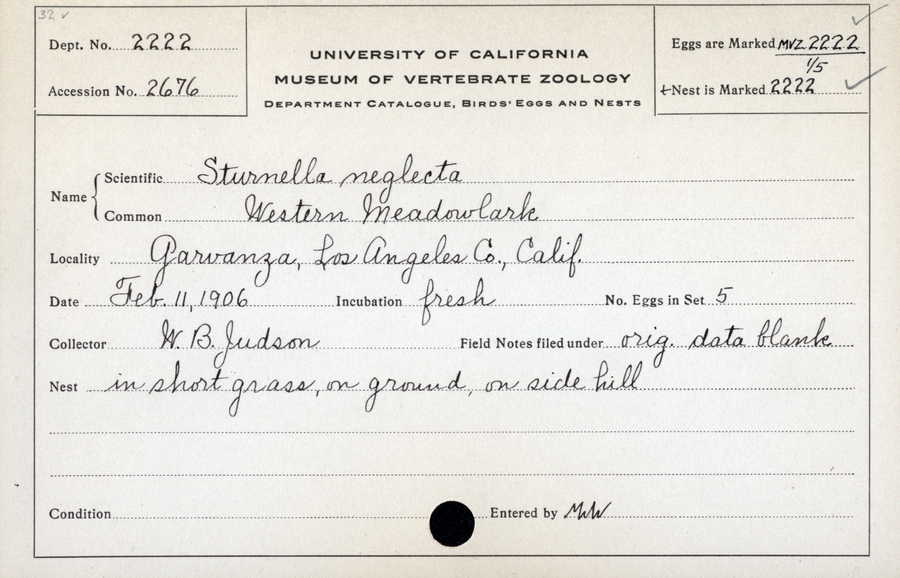 32 ✓
Dept. No. 2222
Accession No. 2676
UNIVERSITY OF CALIFORNIA
MUSEUM OF VERTEBRATE ZOOLOGY
DEPARTMENT CATALOGUE, BIRDS' EGGS AND NESTS
Eggs are Marked MVZ 2222
1/5
+Nest is Marked 2222
Name Scientific Sturnella neglecta
Common Western Meadowlark
Locality Garvanza, Los Angeles Co., Calif.
Date Feb. 11, 1906 Incubation fresh No. Eggs in Set 5
Collector W. B. Judson Field Notes filed under orig. data blank
Nest in short grass, on ground, on side hill
Condition Entered by